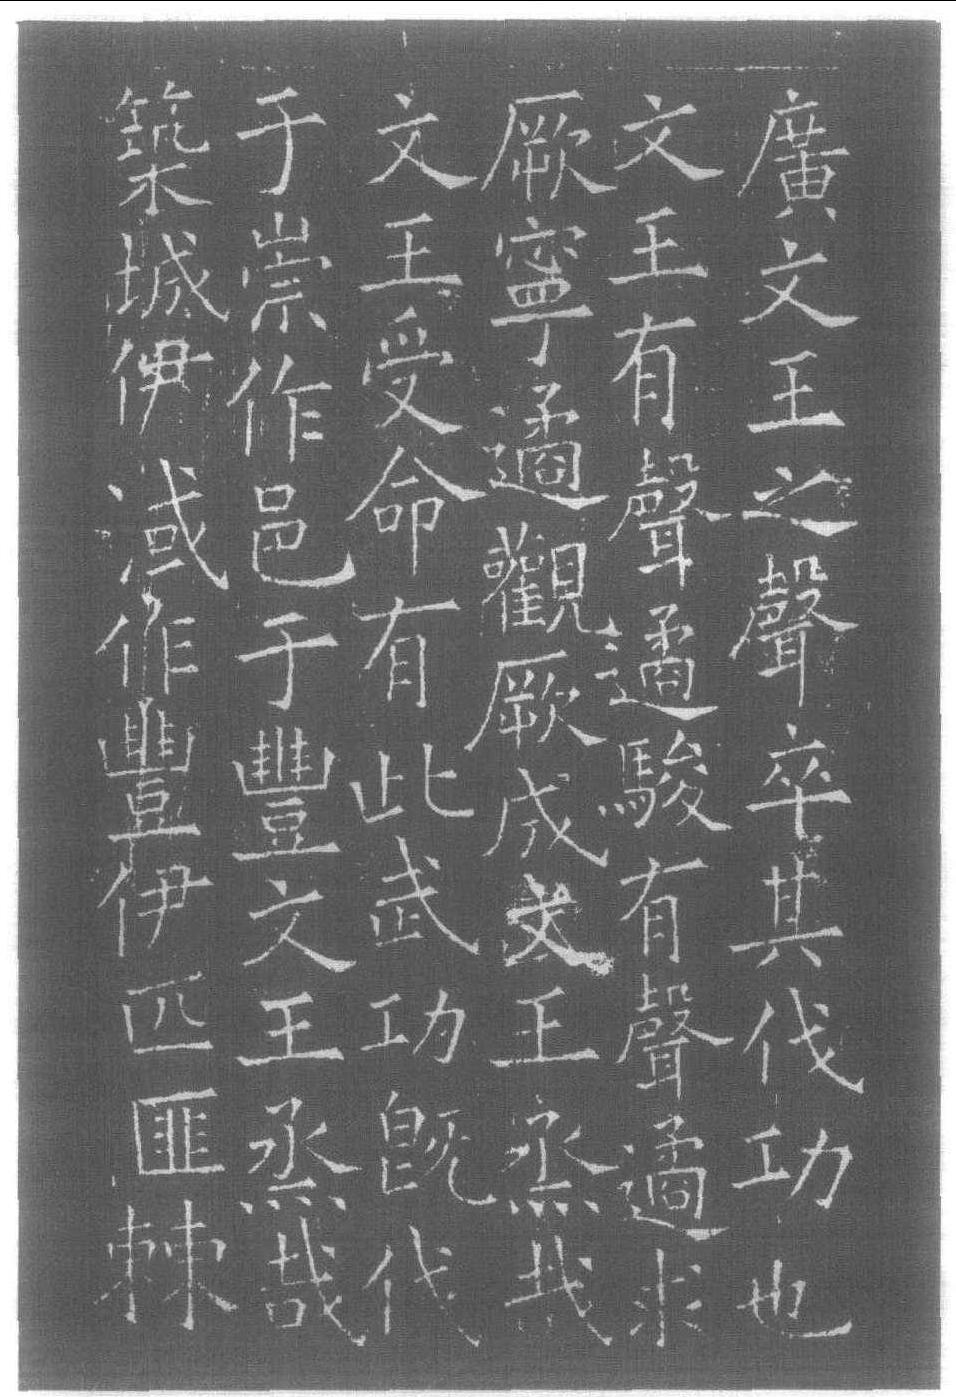 廣文王之聲卒其伐功也
文王有聲遹駿有聲遹求
厥寧遹觀厥成文王烝哉
文王受命有此武功既伐
于崇作邑于豐文王烝哉
築城伊淢作豐伊匹匪棘